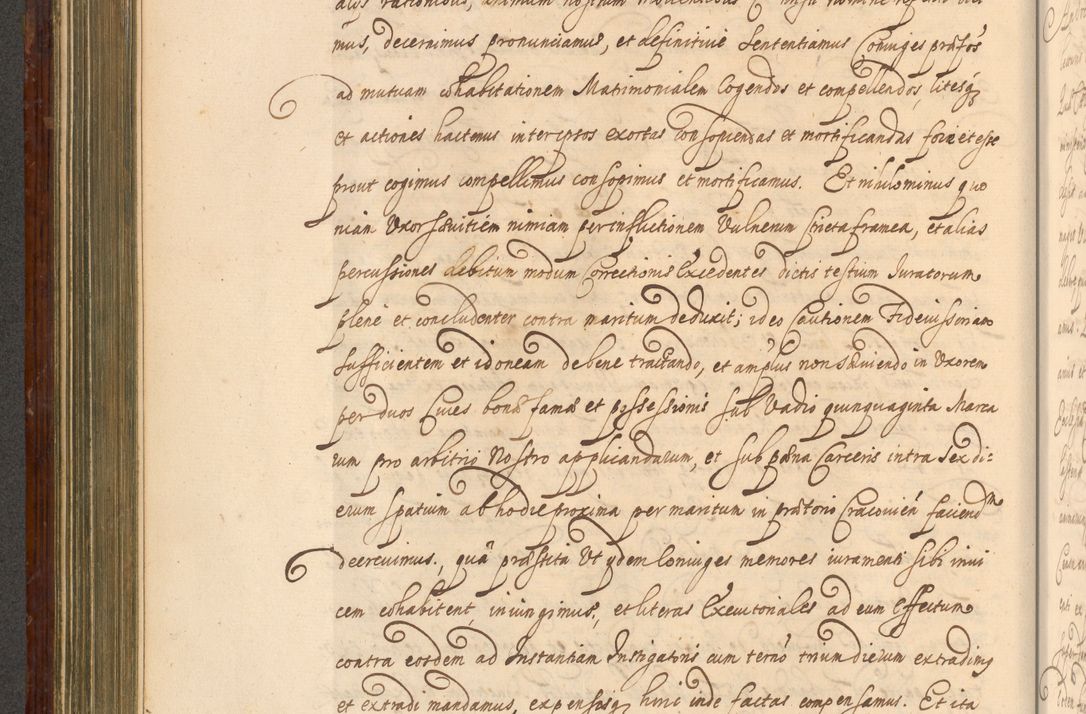 alijs rationibus, animum nostrum moventibus
mus, decernimus pronunciamus, et definitivè Sententiamus Conjuges præfos
ad mutuam cohabitationem Matrimonialem Cogendos et compellendos, litesq
et actiones hactenus inter ipsos exortas consopiendas et mortificandas fore et esse
prout cogimus compellimus consopimus et mortificamus. Et nihilominus quo
niam Uxor sævitiem nimiam per inflictionem Vulnerum Stricta framea, et alias
percussiones debitum modum Correctionis Excedentes dictis testium Juratorum
plene et concludenter contra maritum deduxit; ideo Cautionem Fideiussoriam
sufficientem et idoneam de bene tractando, et amplius non sæviendo in Uxorem
per duos Cives bonæ famæ et possessionis sub Vadio quinquaginta Marca
rum pro arbitrio Nostro applicandarum, et sub pæna Carceris intra Sex di=
erum spatium ab hodie proxima per maritum in prætorio Cracovien faciendm
decrevimus, quâ præstita Ut ydem Coniuges memores iuramenti sibi invi
cem cohabitent, iniungimus, et literas Executoriales ad eum Effectum
contra eosdem ad Instantiam Instigatoris cum terno trium dierum extradimus
et extradi mandamus, expensisq hinc inde factas compensamus. Et ita